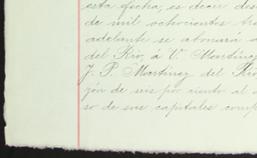 esta fecha, es decir des
de mil ochocientos tre
adelante se abonará
del Rio, á V. Martinez
J. P. Martinez del Rio
zón de seis por ciento al
so de sus capitales comp